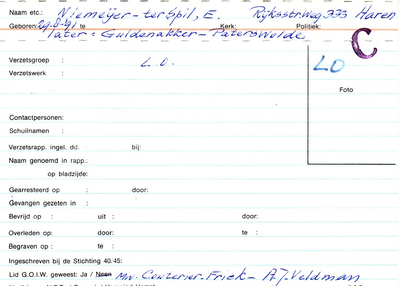 Naam etc.: Niemeÿer-terSpil, E. Rijksstrweg 333 Haren
Geboren: 29-8-'91 te Kerk: Politiek:
later: Guldenakker - Paterswolde.
C
Verzetsgroep : L.O. LO
Verzetswerk :
Foto
Contactpersonen:
Schuilnamen :
Verzetsrapp. ingel. dd. bij:
Naam genoemd in rapp.:
op bladzijde:
Gearresteerd op : door:
Gevangen gezeten in :
Bevrijd op : uit : door:
Overleden op: door: te :
Begraven op : te :
Ingeschreven bij de Stichting 40/45:
Lid G.O.I.W. geweest: Ja / Neen Mw. - Frick - A.J. Veldman